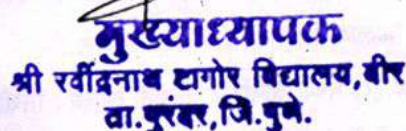 मुख्याध्यापक
श्री रवींद्रनाथ टागोर विद्यालय, वीर
ता.पुरंदर, जि.पुणे.